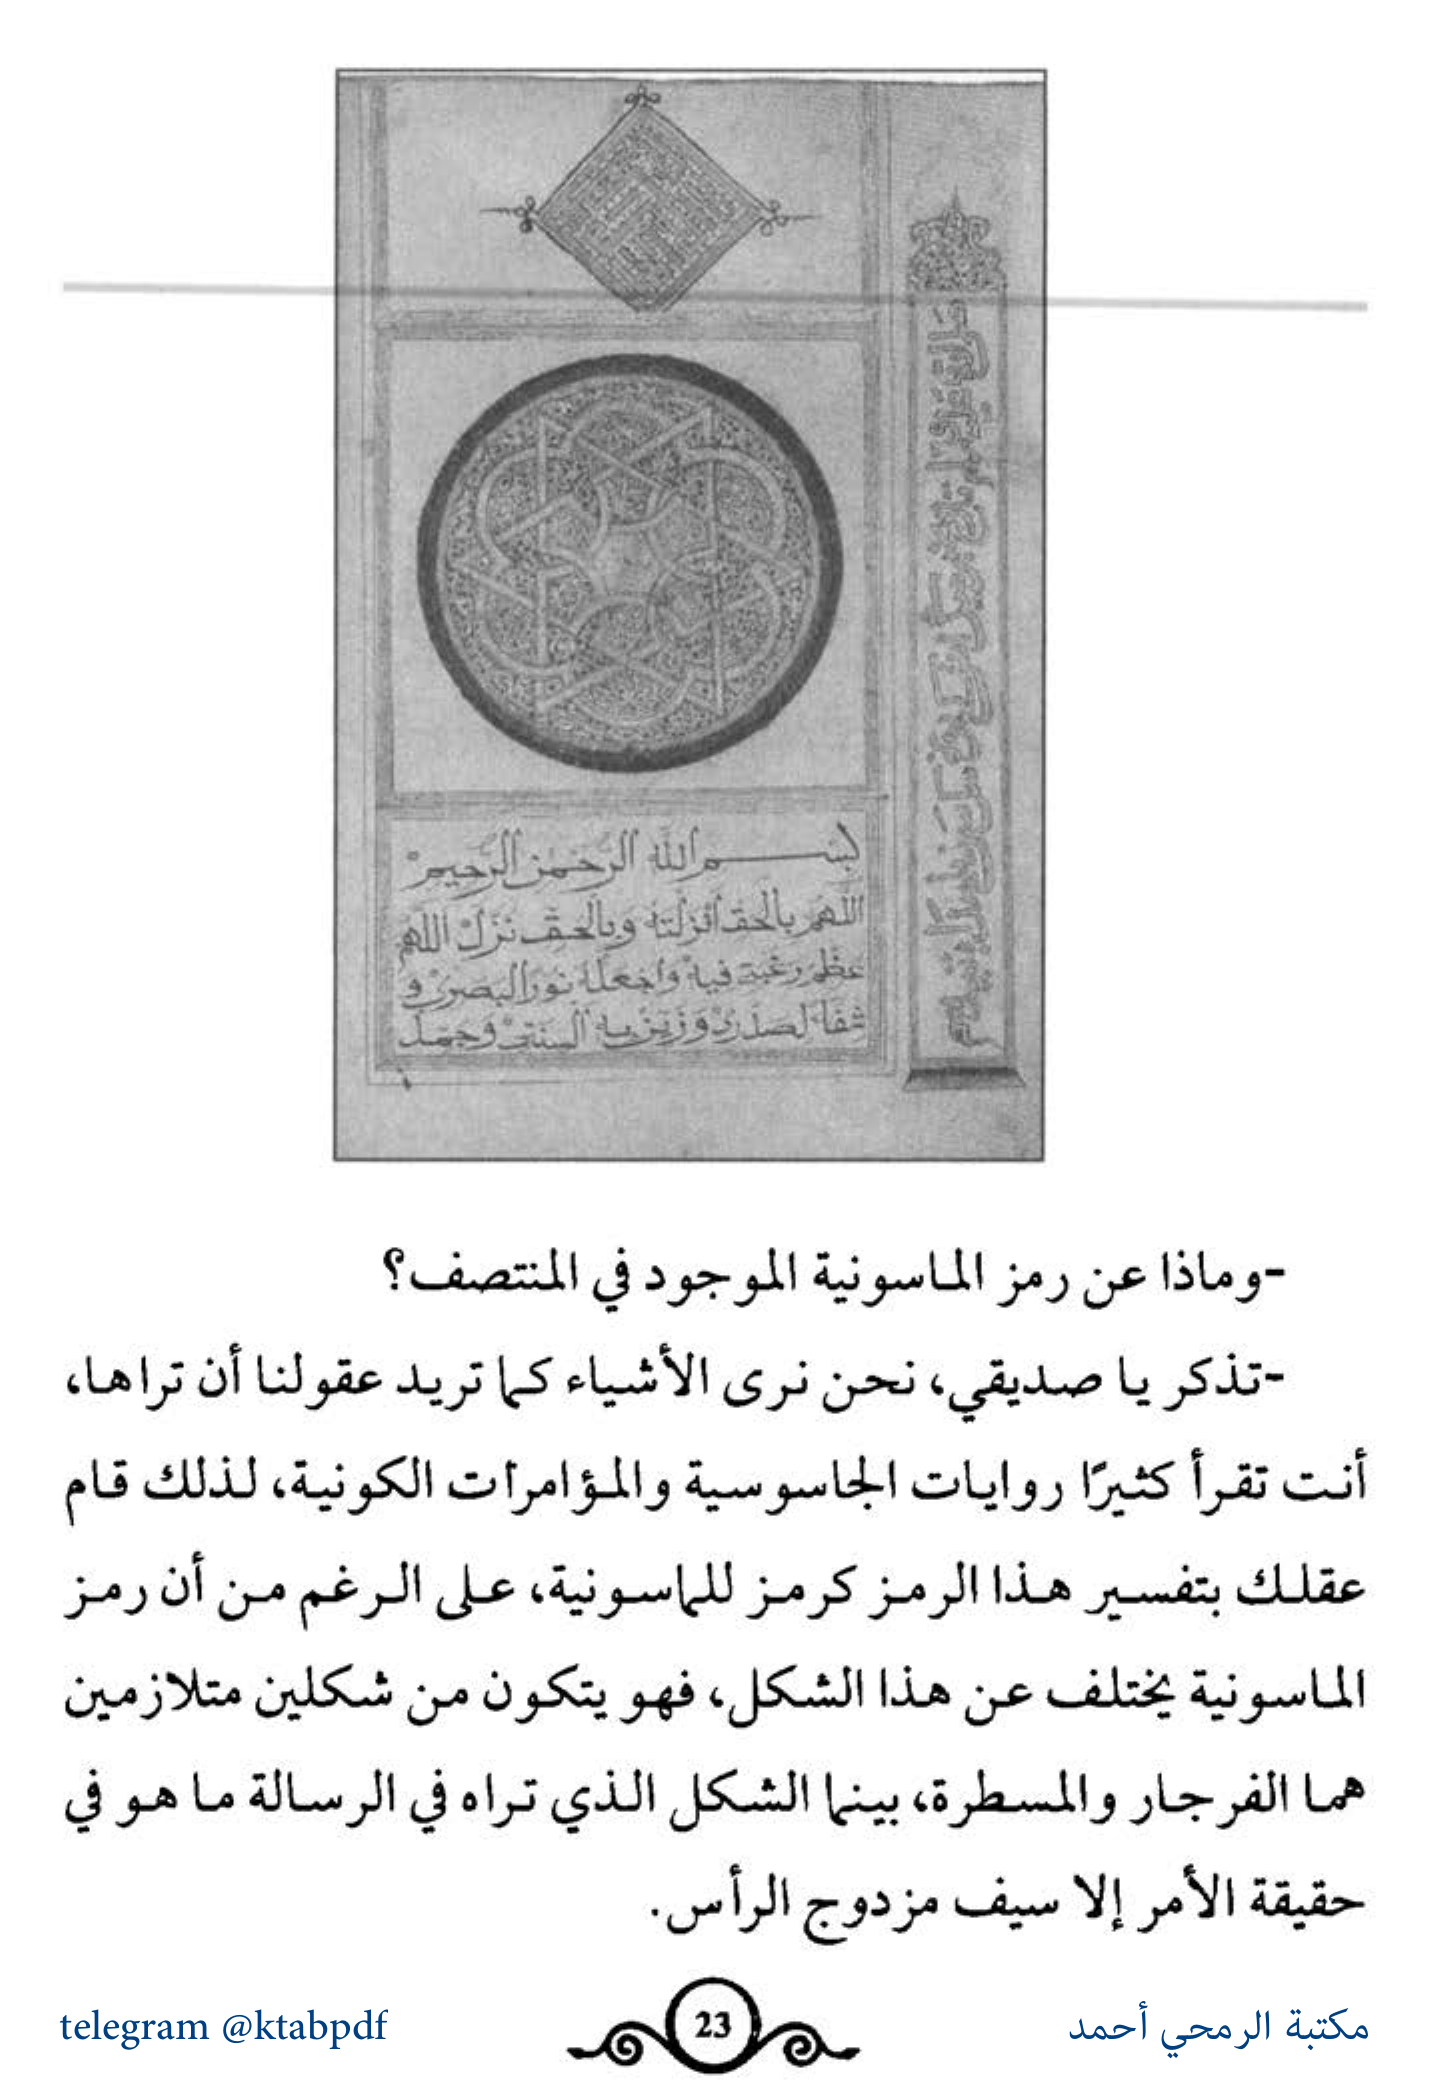 بسم الله الرحمن الرحيم
اللهم بالحق أنزلته وبالحق نزل اللهم
عظم رغبتي فيه واجعله نورا لبصري و
شفاء لصدري وزين به ألسنتي وجمل
-وماذا عن رمز الماسونية الموجود في المنتصف؟
-تذكر يا صديقي، نحن نرى الأشياء كما تريد عقولنا أن تراها،
أنت تقرأ كثيرًا روايات الجاسوسية والمؤامرات الكونية، لذلك قام
عقلك بتفسير هذا الرمز كرمز للماسونية، على الرغم من أن رمز
الماسونية يختلف عن هذا الشكل، فهو يتكون من شكلين متلازمين
هما الفرجار والمسطرة، بينما الشكل الذي تراه في الرسالة ما هو في
حقيقة الأمر إلا سيف مزدوج الرأس.
مكتبة الرمحي أحمد
23
telegram @ktabpdf